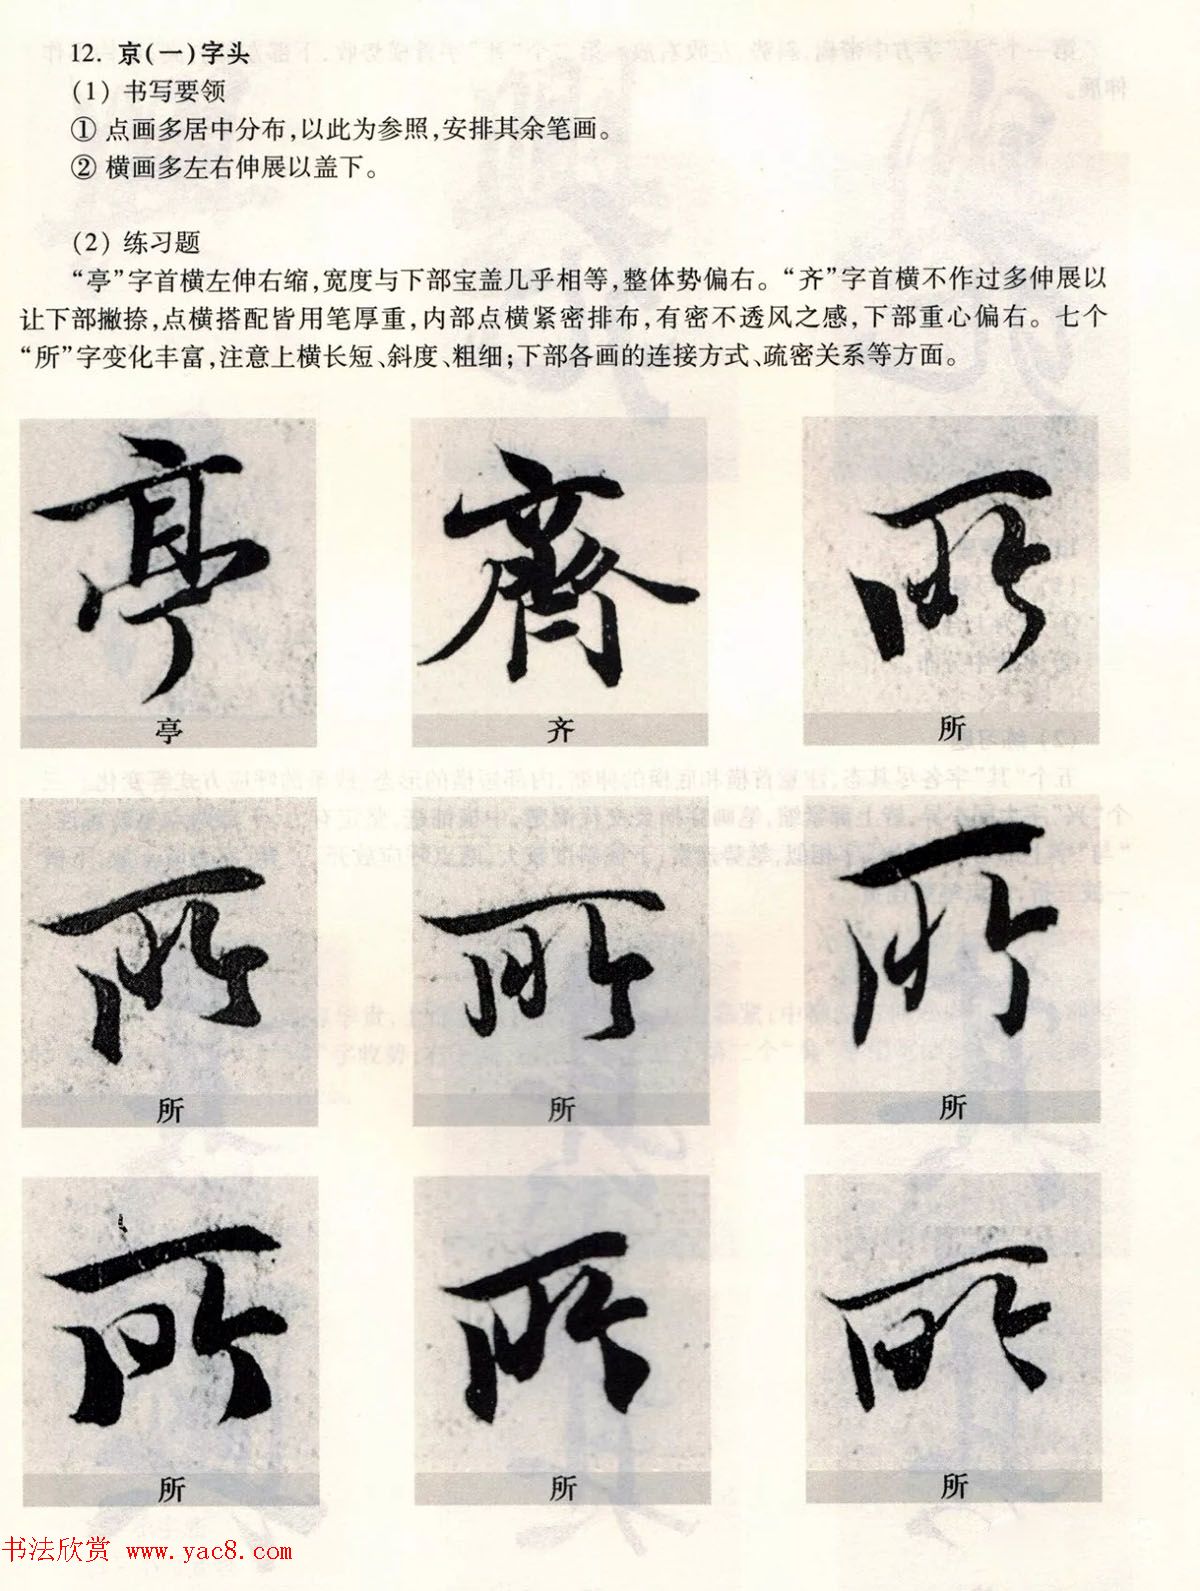 12. 京(一)字头
(1) 书写要领
① 点画多居中分布,以此为参照,安排其余笔画。
② 横画多左右伸展以盖下。
(2) 练习题
“亭”字首横左伸右缩,宽度与下部宝盖几乎相等,整体势偏右。“齐”字首横不作过多伸展以
让下部撇捺,点横搭配皆用笔厚重,内部点横紧密排布,有密不透风之感,下部重心偏右。七个
“所”字变化丰富,注意上横长短、斜度、粗细;下部各画的连接方式、疏密关系等方面。
亭 齊 所
亭 齐 所
所 所 所
所 所 所
所 所 所
所 所 所
书法欣赏 www.yac8.com